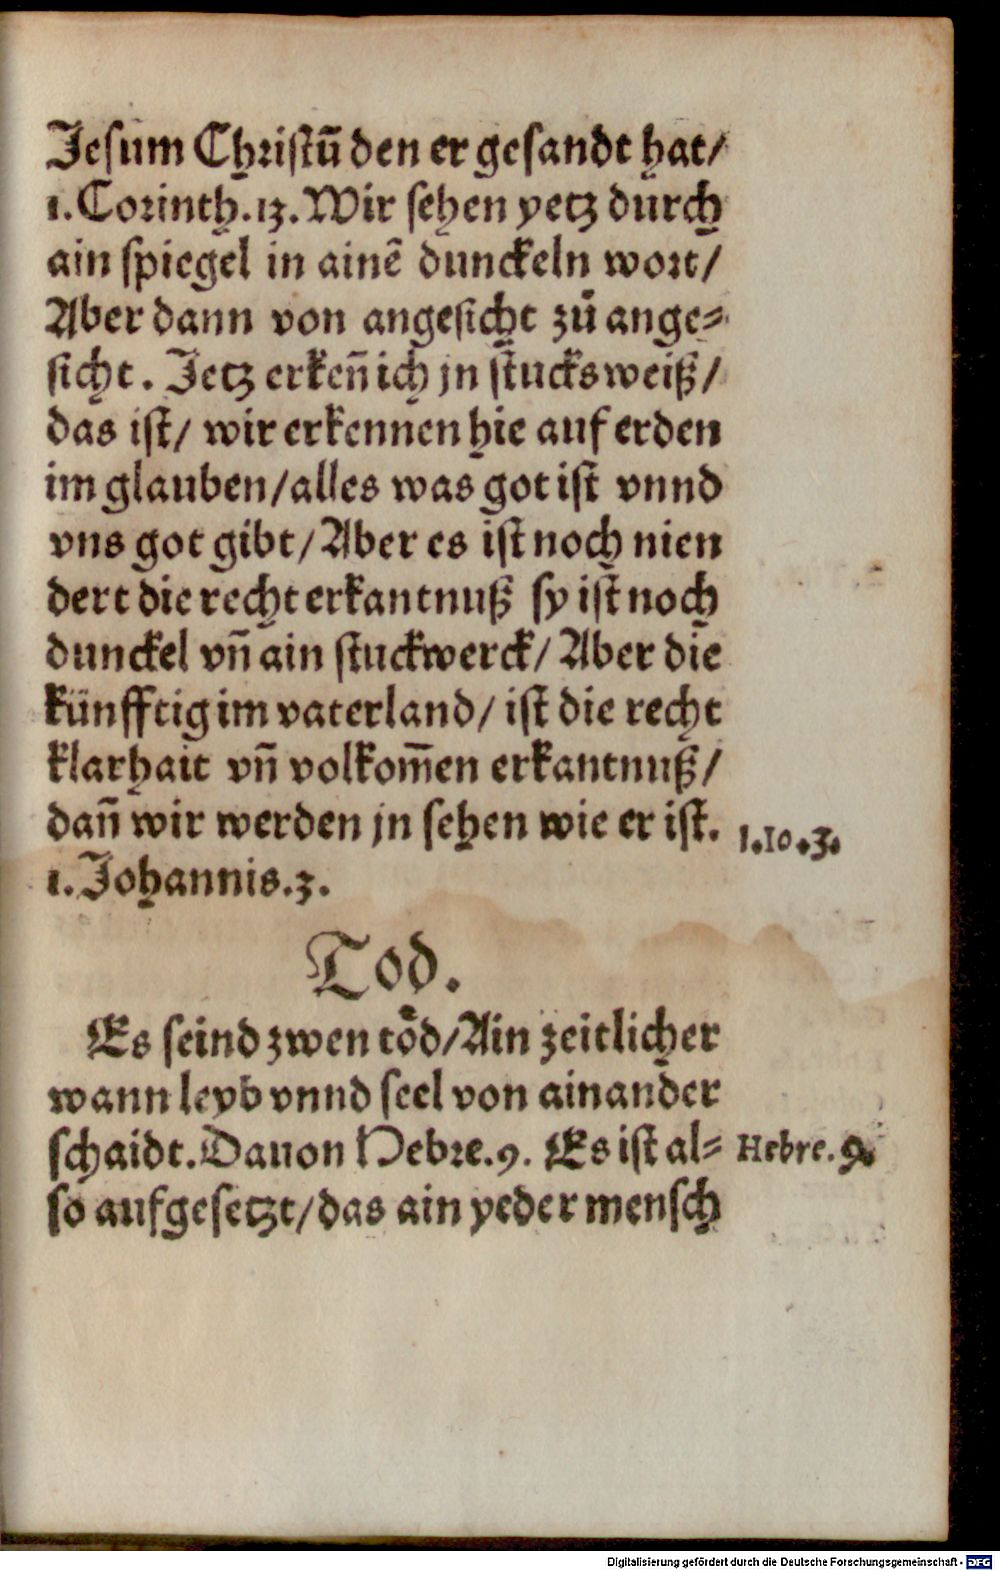 Jesum Christū den er gesandt hat/
1. Corinth. 13. Wir sehen yetz durch
ain spiegel in ainē dunckeln wort/
Aber dann von angesicht zů ange⸗
sicht. Jetz erkeñ ich jn stucksweiß/
das ist/ wir erkennen hie auf erden
im glauben/ alles was got ist vnnd
vns got gibt/ Aber es ist noch nien
dert die recht erkantnuß sy ist noch
dunckel vñ ain stuckwerck/ Aber die
künfftig im vaterland/ ist die recht
klarhait vñ volkom̄en erkantnuß/
dañ wir werden jn sehen wie er ist.
1. Johannis. 3.
1. Io. 3.
Tod.
Es seind zwen tӧd/ Ain zeitlicher
wann leyb vnnd seel von ainander
schaidt. Dauon Hebre. 9. Es ist al⸗
so aufgesetzt/ das ain yeder mensch
Hebre. 9.
Digitalisierung gefördert durch die Deutsche Forschungsgemeinschaft - DFG